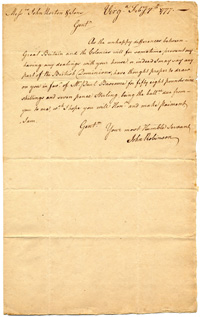 Mess.rs John Norton & Son Virg.a Feb.y 7th 1775.
Gent.n
As the unhappy differences between
Great Britain and the Colonies will for sometime, prevent my
having any dealings with your house, or indeed any of any
part of the British Dominions, have thought proper to draw
on you in favr. of Mr. for fifty eight pounds
shillings and seven pence Sterling, being the ball.ce due from
you to me, wch. I hope you will Honr. and make paiment,
I am
Gent.n
Your most Humble Servant
John Robinson